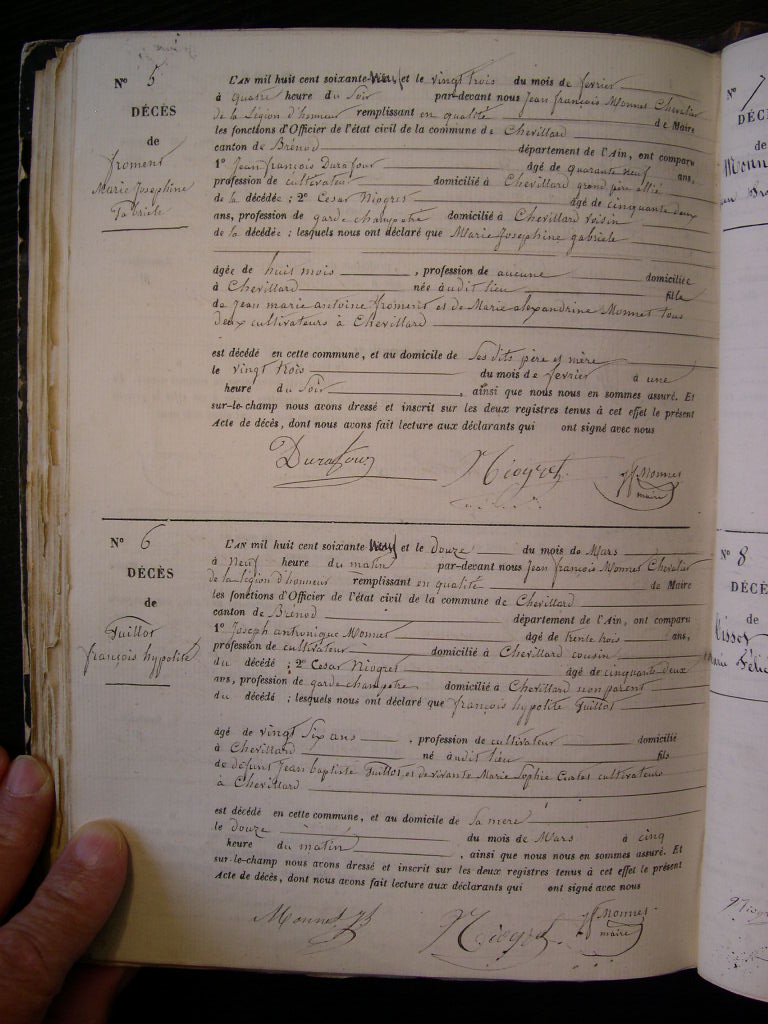 N° 5
DÉCÈS
de
froment
Marie Josephine
Gabriele
L'AN mil huit cent soixante-neuf et le vingt trois du mois de fevrier
à quatre heure du Soir par-devant nous Jean françois Monnet Chevalier
de la Légion d'honneur remplissant en qualité de Maire
les fonctions d'Officier de l'état civil de la commune de Chevillard
canton de Brénod département de l'Ain, ont comparu
1° Jean françois Durafour âgé de quarante neuf ans,
profession de cultivateur domicilié à Chevillard grand père allié
de la décédée ; 2° Cesar Niogret âgé de cinquante deux
ans, profession de garde champetre domicilié à Chevillard voisin
de la décédée ; lesquels nous ont déclaré que Marie Josephine gabriele
âgée de huit mois , profession de aucune domiciliée
à Chevillard née audit lieu fille
de Jean marie antoine froment et de Marie alexandrine Monnet tous
deux cultivateurs à Chevillard
est décédé en cette commune, et au domicile de Ses dits père et mère
le vingt trois du mois de fevrier à une
heure du Soir , ainsi que nous nous en sommes assuré. Et
sur-le-champ nous avons dressé et inscrit sur les deux registres tenus à cet effet le présent
Acte de décès, dont nous avons fait lecture aux déclarants qui ont signé avec nous
Durafour Niogret Monnet
maire
N° 6
DÉCÈS
de
Guillot
françois hypolite
L'AN mil huit cent soixante-neuf et le douze du mois de Mars
à neuf heure du matin par-devant nous Jean françois Monnet Chevalier
de la légion d'honneur remplissant en qualité de Maire
les fonctions d'Officier de l'état civil de la commune de Chevillard
canton de Brénod département de l'Ain, ont comparu
1° Joseph antronique Monnet âgé de trente trois ans,
profession de cultivateur domicilié à Chevillard cousin
du décédé ; 2° Cesar Niogret âgé de cinquante deux
ans, profession de garde champetre domicilié à Chevillard non parent
du décédé ; lesquels nous ont déclaré que françois hypolite Guillot
âgé de vingt Six ans , profession de cultivateur domicilié
à Chevillard né audit lieu fils
de defunt Jean baptiste Guillot et de vivante Marie Sophie cultivateurs
à Chevillard
est décédé en cette commune, et au domicile de Sa mere
le douze du mois de Mars à cinq
heure du matin , ainsi que nous nous en sommes assuré. Et
sur-le-champ nous avons dressé et inscrit sur les deux registres tenus à cet effet le présent
Acte de décès, dont nous avons fait lecture aux déclarants qui ont signé avec nous
Monnet Niogret Monnet
maire
N° 7
DÉC
de
Monn
N° 8
DÉCÈ
de